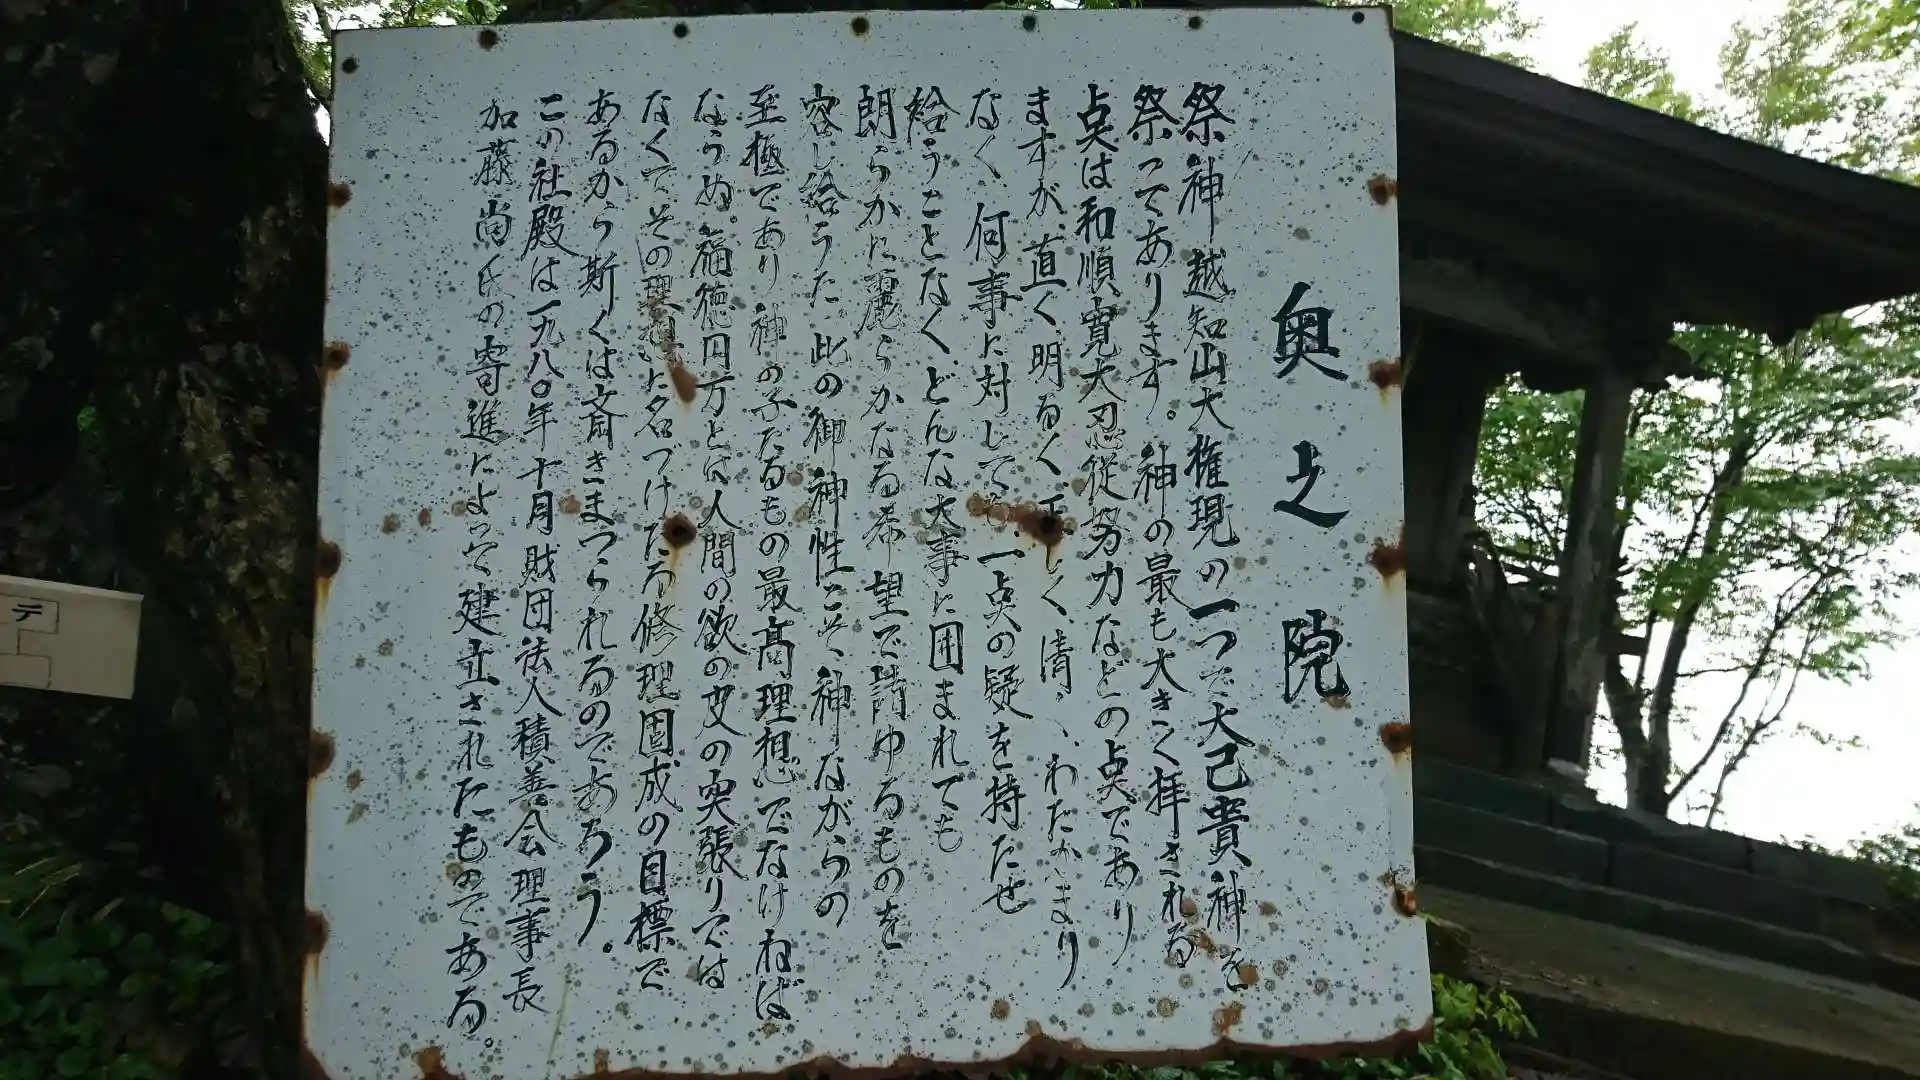 奥之院
祭神 越知山大権現の一つで大己貴神を
祭ってあります。神の最も大きく拝される
点は和順寛大忍従努力などの点であり
ますが、直く、明るく正しく、清、、わたかまり
なく、何事に対しても、一点の疑を持たせ
給うことなく、どんな大事に囲まれても
朗らかに麗らかなる希望で請ゆるものを
容し給うた、此の御神性こそ、神ながらの
至極であり神の子たるもの最高理想でなければ
ならぬ。福徳円万とは人間の欲の皮の突張りでは
なくてその理想に名づけたる修理固成の目標で
あるから斯くは斎きまつられるのであろう。
この社殿は一九八〇年十月財団法人積善会理事長
加藤尚氏の寄進によって建立されたものである。
テ